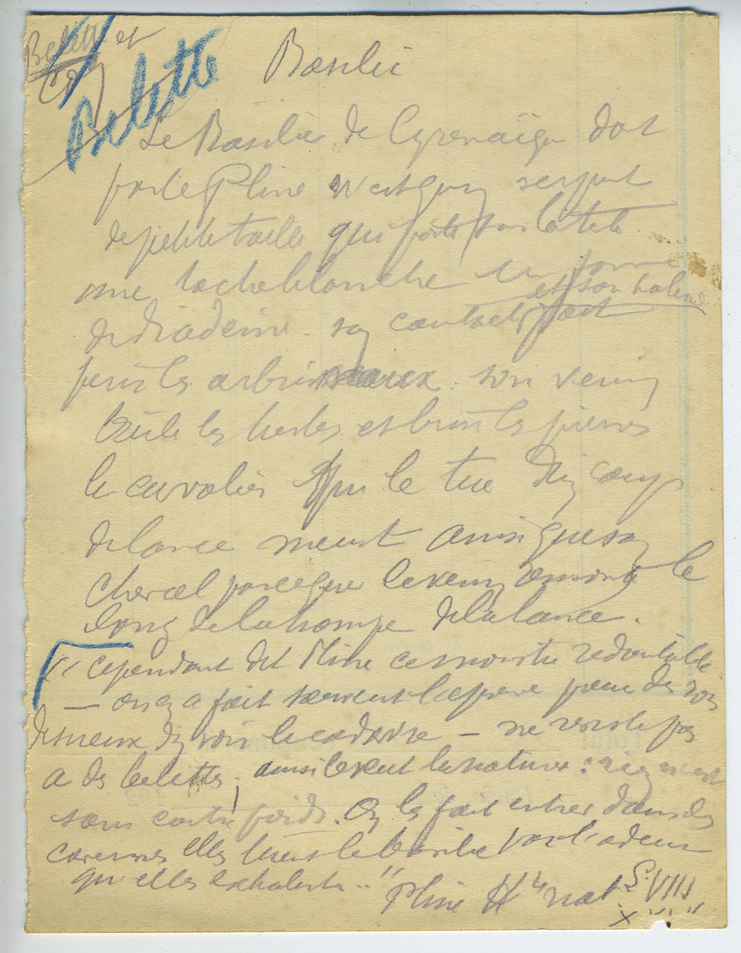 Belette et
Coq
Belette
Basilic
Le Basilic de Cyrénaïque dont
parle Pline n'est qu'un serpent
de petite taille qui porte sur la tête
une tache blanche en forme
de diadème. son contact et son haleine font
périr les arbrisseaux. son venin
brûle les herbes et brise les pierres
le cavalier qui le tue d'un coup
de lance meurt ainsi que son
cheval parce que le venin remonte le
long de la hampe de la lance.
"cependant dit Pline ce monstre redoutable
— on en a fait souvent l'épreuve pour des rois
désireux d'en voir le cadavre — ne résiste pas
a des belettes; ainsi le veut la nature: rien n'est
sans contre poids. On les fait entrer dans des
cavernes elles tuent le basilic par l'odeur
qu'elles exhalent.." Pline Hre nat. L. VIII